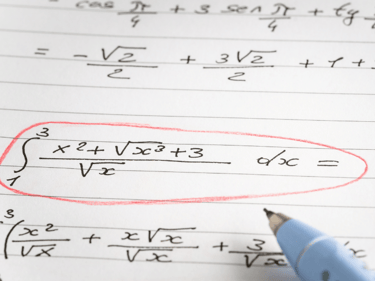 cos π/4 + 3 sen π/4 + tg
= -√2/2 + 3√2/2 + 1 +
∫₁³ (x² + √x³ + 3)/√x dx =
3 (x²/√x + x√x/√x + 3/√x x